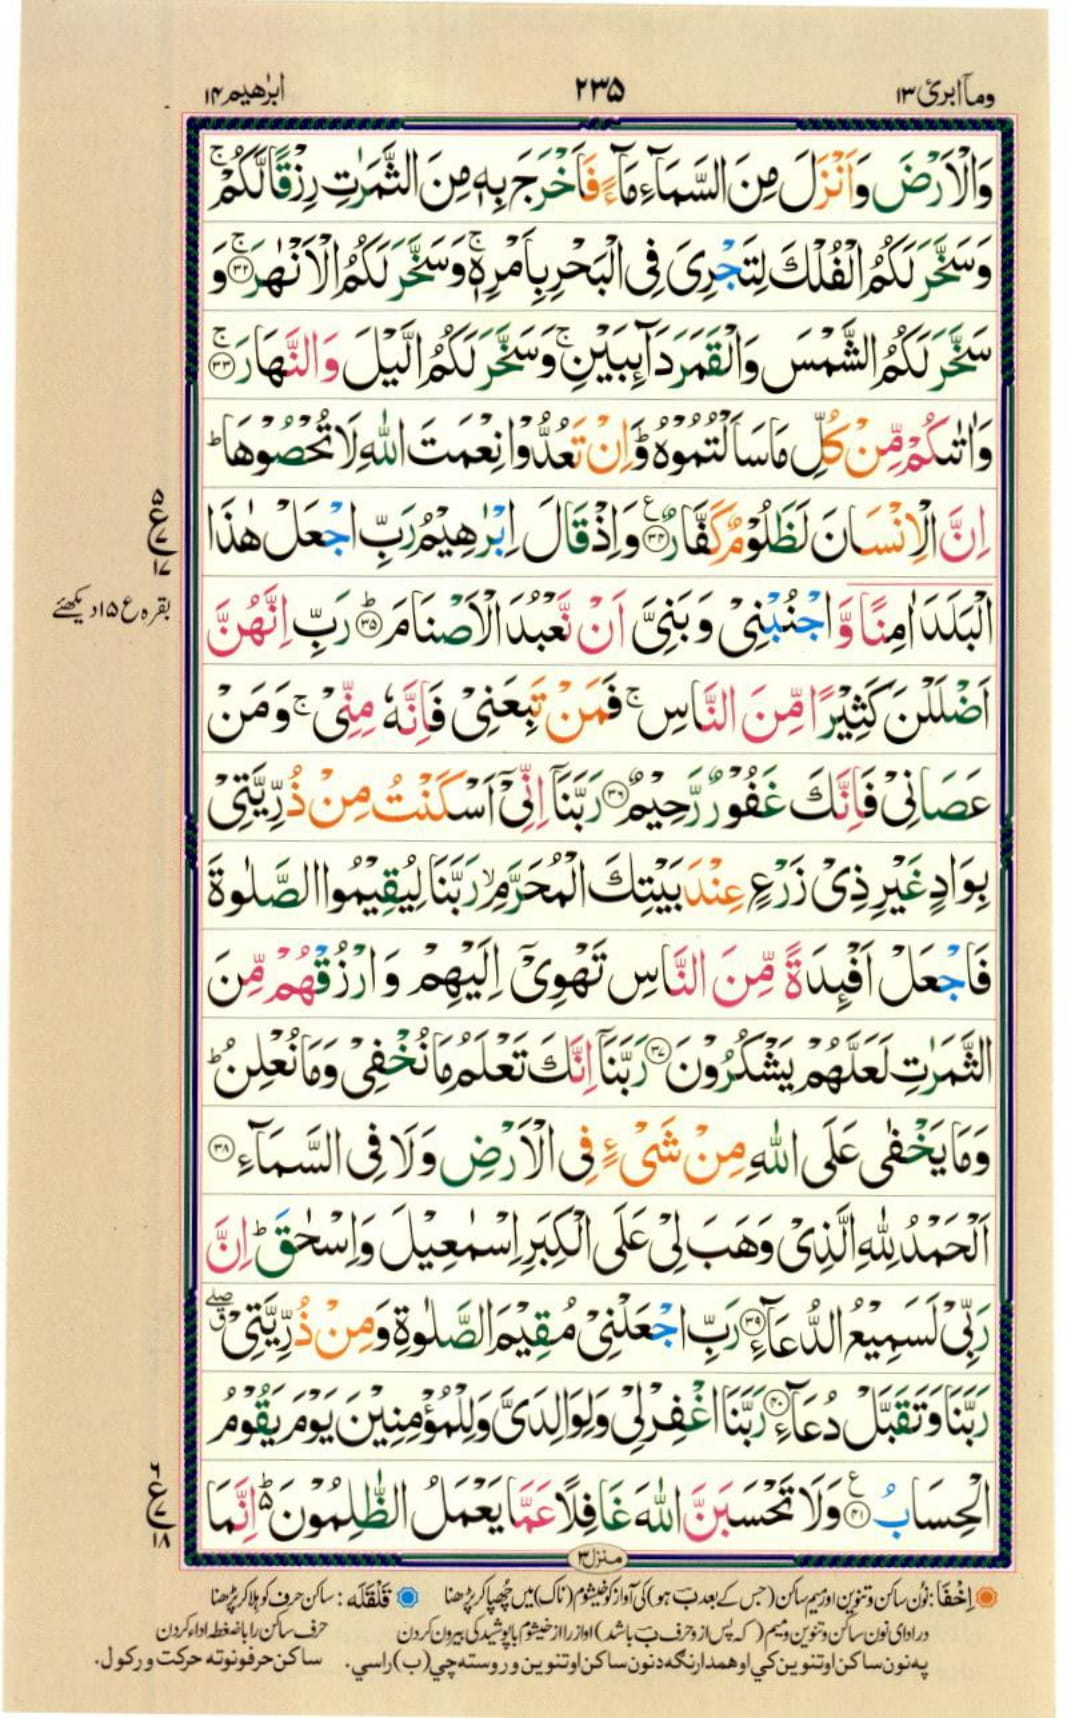 ابرٰهیم ۱۴ ۲۳۵ ومآ ابرئ ۱۳
وَالْاَرْضَ وَاَنْزَلَ مِنَ السَّمَآءِ مَآءً فَاَخْرَجَ بِهٖ مِنَ الثَّمَرٰتِ رِزْقًا لَّكُمْ ۚ
وَسَخَّرَ لَكُمُ الْفُلْكَ لِتَجْرِیَ فِی الْبَحْرِ بِاَمْرِهٖ ۚ وَسَخَّرَ لَكُمُ الْاَنْهٰرَ ۚ ﴿۳۲﴾ وَ
سَخَّرَ لَكُمُ الشَّمْسَ وَالْقَمَرَ دَآىِٕبَیْنِ ۚ وَسَخَّرَ لَكُمُ الَّیْلَ وَالنَّهَارَ ۚ ﴿۳۳﴾
وَاٰتٰىكُمْ مِّنْ كُلِّ مَا سَاَلْتُمُوْهُ ؕ وَاِنْ تَعُدُّوْا نِعْمَتَ اللّٰهِ لَا تُحْصُوْهَا ؕ
اِنَّ الْاِنْسَانَ لَظَلُوْمٌ كَفَّارٌ ﴿۳۴﴾ وَاِذْ قَالَ اِبْرٰهِیْمُ رَبِّ اجْعَلْ هٰذَا
۵ ع ۷ ۱۷
الْبَلَدَ اٰمِنًا وَّاجْنُبْنِیْ وَبَنِیَّ اَنْ نَّعْبُدَ الْاَصْنَامَ ؕ ﴿۳۵﴾ رَبِّ اِنَّهُنَّ
بقرہ ع ۱۵ دیکھئے
اَضْلَلْنَ كَثِیْرًا مِّنَ النَّاسِ ۚ فَمَنْ تَبِعَنِیْ فَاِنَّهٗ مِنِّیْ ۚ وَمَنْ
عَصَانِیْ فَاِنَّكَ غَفُوْرٌ رَّحِیْمٌ ﴿۳۶﴾ رَبَّنَاۤ اِنِّیْۤ اَسْكَنْتُ مِنْ ذُرِّیَّتِیْ
بِوَادٍ غَیْرِ ذِیْ زَرْعٍ عِنْدَ بَیْتِكَ الْمُحَرَّمِ ۙ رَبَّنَا لِیُقِیْمُوا الصَّلٰوةَ
فَاجْعَلْ اَفْىِٕدَةً مِّنَ النَّاسِ تَهْوِیْۤ اِلَیْهِمْ وَارْزُقْهُمْ مِّنَ
الثَّمَرٰتِ لَعَلَّهُمْ یَشْكُرُوْنَ ﴿۳۷﴾ رَبَّنَاۤ اِنَّكَ تَعْلَمُ مَا نُخْفِیْ وَمَا نُعْلِنُ ؕ
وَمَا یَخْفٰی عَلَی اللّٰهِ مِنْ شَیْءٍ فِی الْاَرْضِ وَلَا فِی السَّمَآءِ ﴿۳۸﴾
اَلْحَمْدُ لِلّٰهِ الَّذِیْ وَهَبَ لِیْ عَلَی الْكِبَرِ اِسْمٰعِیْلَ وَاِسْحٰقَ ؕ اِنَّ
رَبِّیْ لَسَمِیْعُ الدُّعَآءِ ﴿۳۹﴾ رَبِّ اجْعَلْنِیْ مُقِیْمَ الصَّلٰوةِ وَمِنْ ذُرِّیَّتِیْ ۖۗ
رَبَّنَا وَتَقَبَّلْ دُعَآءِ ﴿۴۰﴾ رَبَّنَا اغْفِرْ لِیْ وَلِوَالِدَیَّ وَلِلْمُؤْمِنِیْنَ یَوْمَ یَقُوْمُ
الْحِسَابُ ﴿۴۱﴾ وَلَا تَحْسَبَنَّ اللّٰهَ غَافِلًا عَمَّا یَعْمَلُ الظّٰلِمُوْنَ ؕ۬ اِنَّمَا
۶ ع ۷ ۱۸
منزل ۳
اِخْفَا : نُون ساکن و تنوین اور میم ساکن (جس کے بعد بَ ہو) کی آواز کو خیشوم (ناک) میں چُھپا کر پڑھنا قَلْقَلَہ : ساکن حرف کو ہلا کر پڑھنا
در ادای نون ساکن و تنوین و میم (که پس از و حرف بَ باشد) اواز را از خیشوم با پوشیدگی بیرون کردن حرف ساکن را با ضغطه ادا کردن
په نون ساکن او تنوین کي او همدا رنګه د نون ساکن او تنوین وروسته چي (ب) راسي. ساکن حرفونو ته حرکت ورکول.